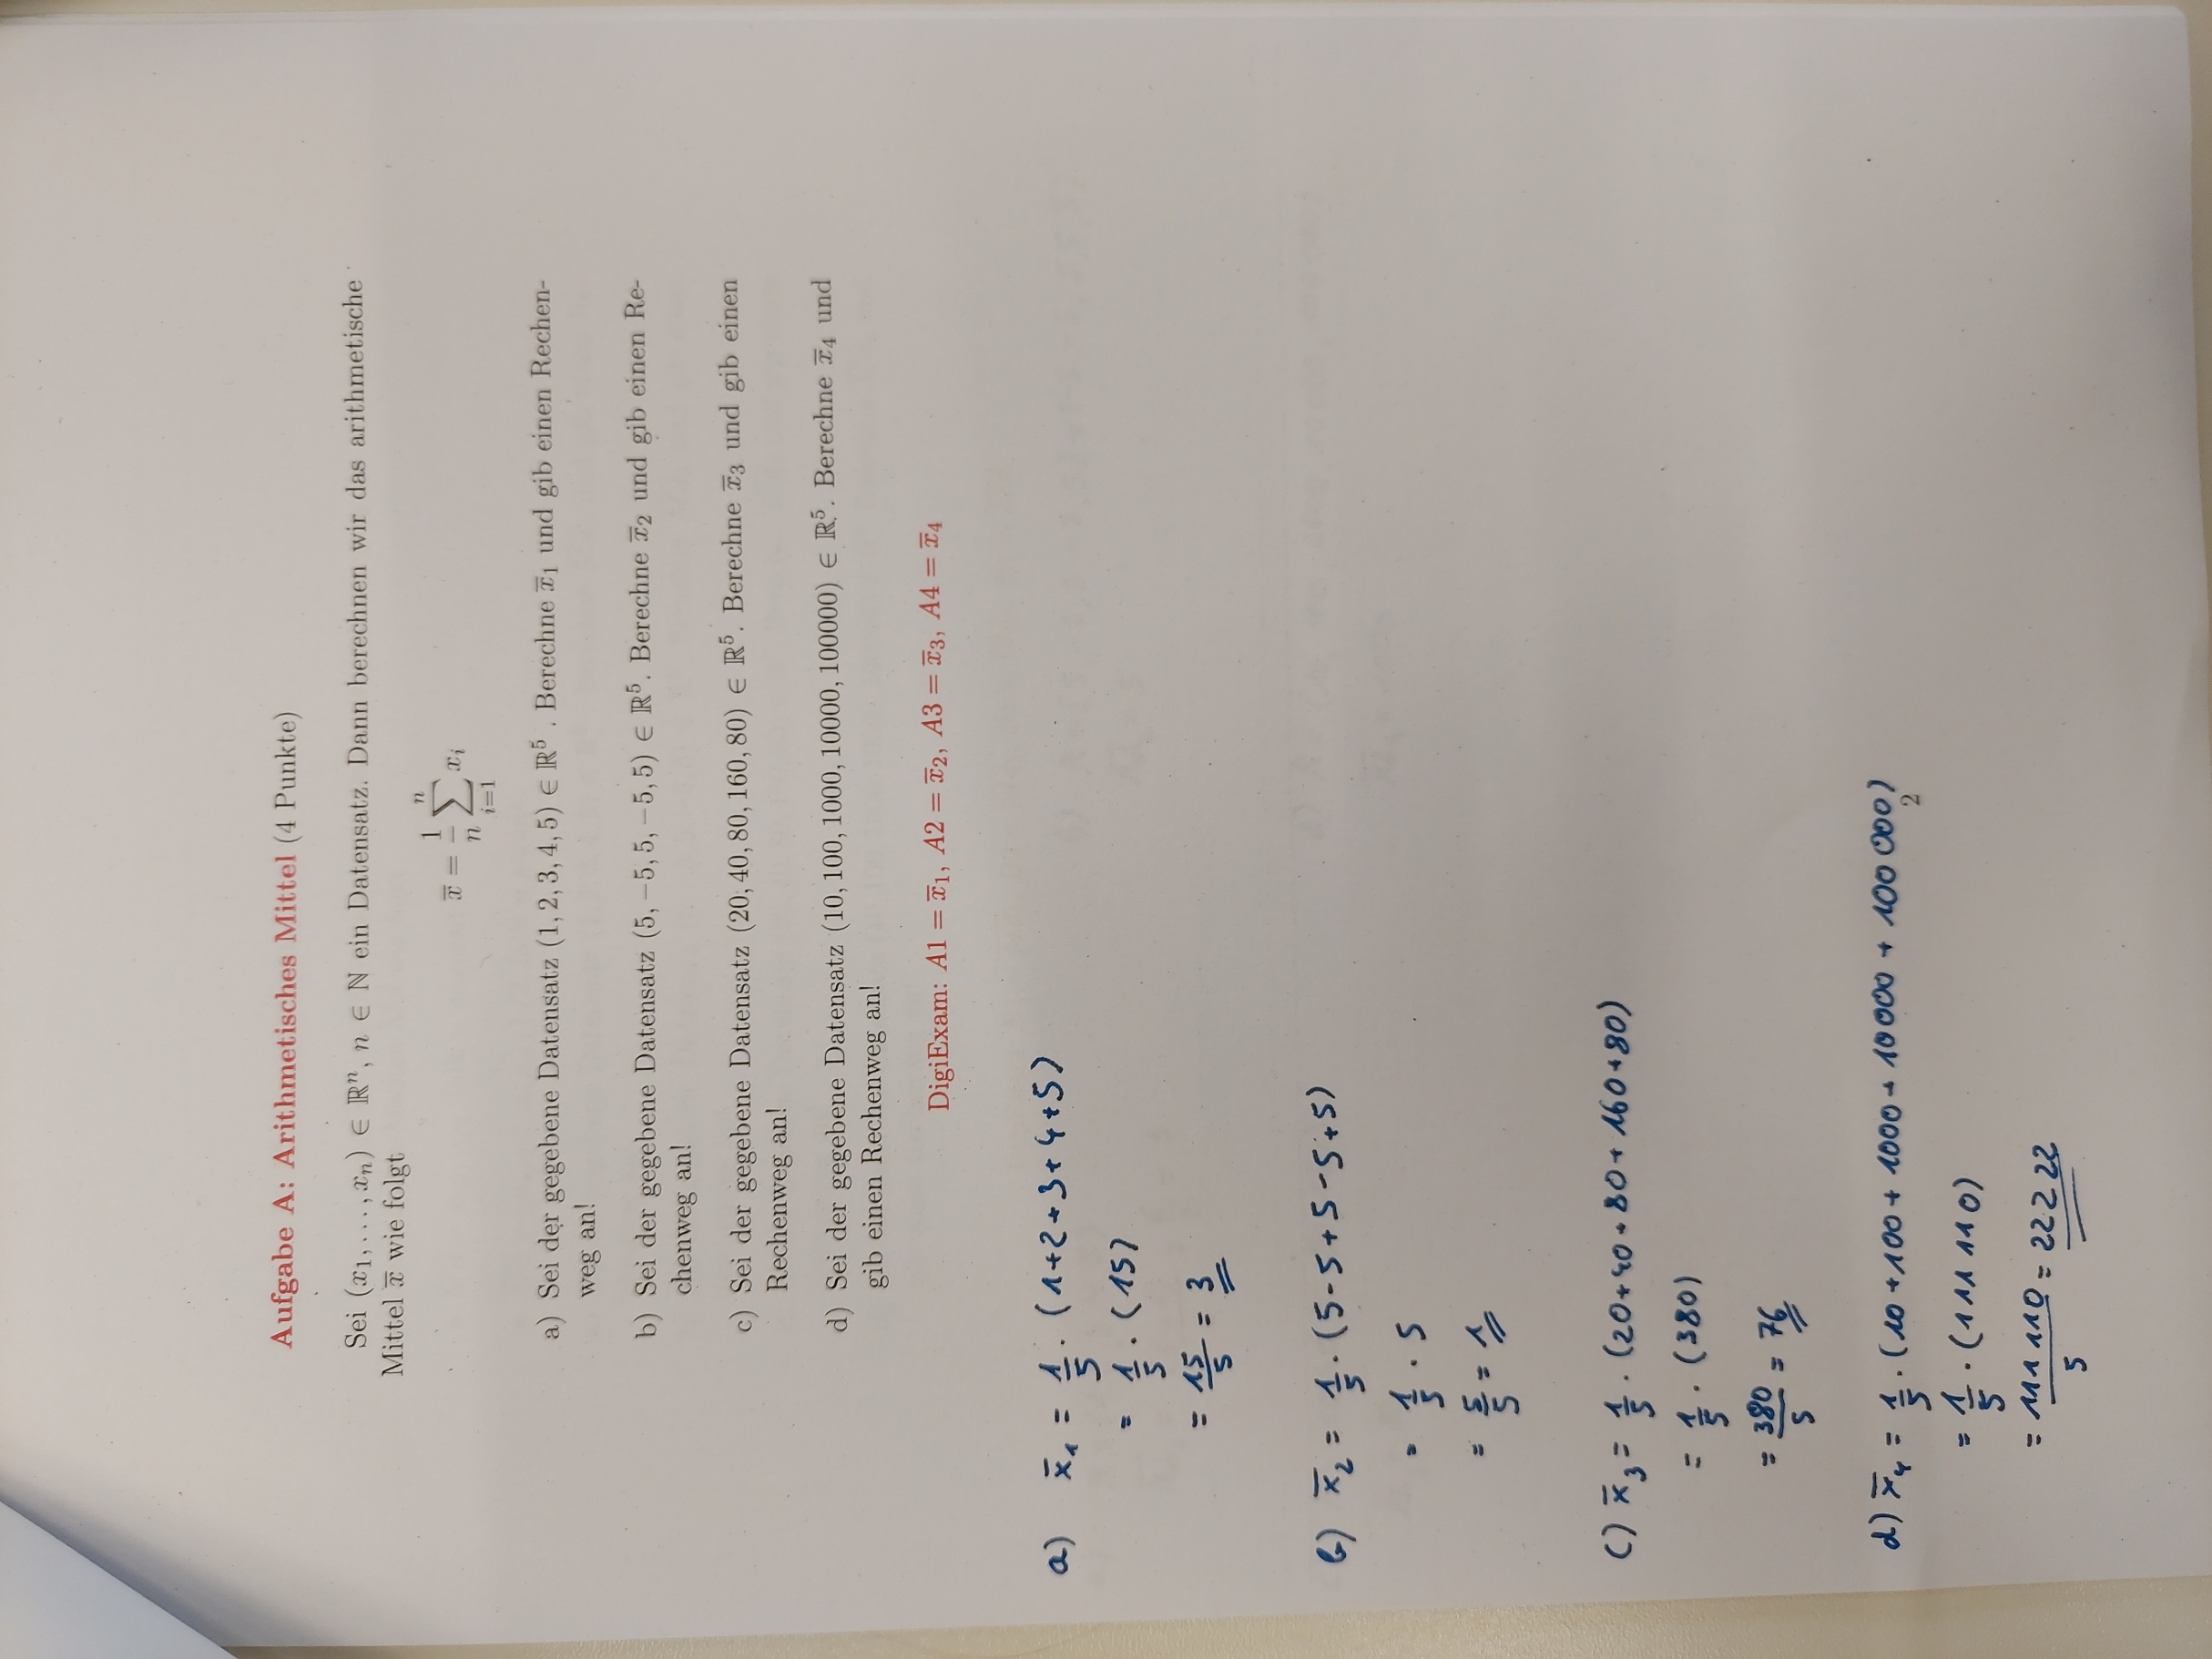 Aufgabe A: Arithmetisches Mittel (4 Punkte)
Sei (x₁, . . . , xₙ) ∈ ℝⁿ, n ∈ ℕ ein Datensatz. Dann berechnen wir das arithmetische
Mittel x̅ wie folgt
x̅ = 1/n ∑_{i=1}^{n} xᵢ
a) Sei der gegebene Datensatz (1, 2, 3, 4, 5) ∈ ℝ⁵ . Berechne x̅₁ und gib einen Rechen-
weg an!
b) Sei der gegebene Datensatz (5, −5, 5, −5, 5) ∈ ℝ⁵. Berechne x̅₂ und gib einen Re-
chenweg an!
c) Sei der gegebene Datensatz (20, 40, 80, 160, 80) ∈ ℝ⁵. Berechne x̅₃ und gib einen
Rechenweg an!
d) Sei der gegebene Datensatz (10, 100, 1000, 10000, 100000) ∈ ℝ⁵. Berechne x̅₄ und
gib einen Rechenweg an!
DigiExam: A1 = x̅₁, A2 = x̅₂, A3 = x̅₃, A4 = x̅₄
a) x̅₁ = 1/5 · (1+2+3+4+5)
= 1/5 · (15)
= 15/5 = 3
b) x̅₂ = 1/5 · (5-5+5-5+5)
= 1/5 · 5
= 5/5 = 1
c) x̅₃ = 1/5 · (20+40+80+160+80)
= 1/5 · (380)
= 380/5 = 76
d) x̅₄ = 1/5 · (10+100+1000+10000+100 000)
2
= 1/5 · (111 110)
= 111 110/5 = 22222